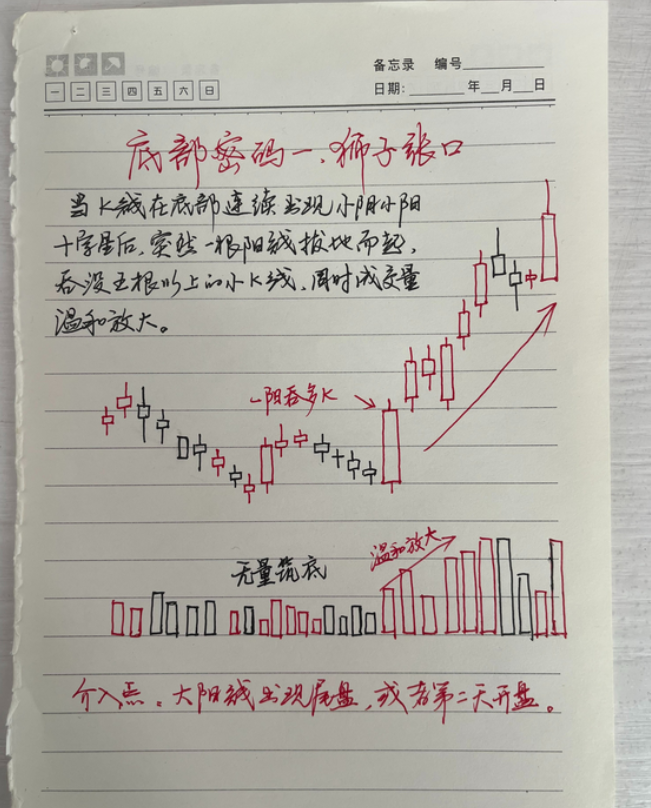 备忘录 编号
一 二 三 四 五 六 日 日期: 年 月 日
底部密码一、狮子张口
当K线在底部连续出现小阴小阳
十字星后,突然一根阳线拔地而起,
吞没五根以上的小K线,同时成交量
温和放大。
一阳吞多K
温和放大
无量筑底
介入点:大阳线出现尾盘,或者第二天开盘。